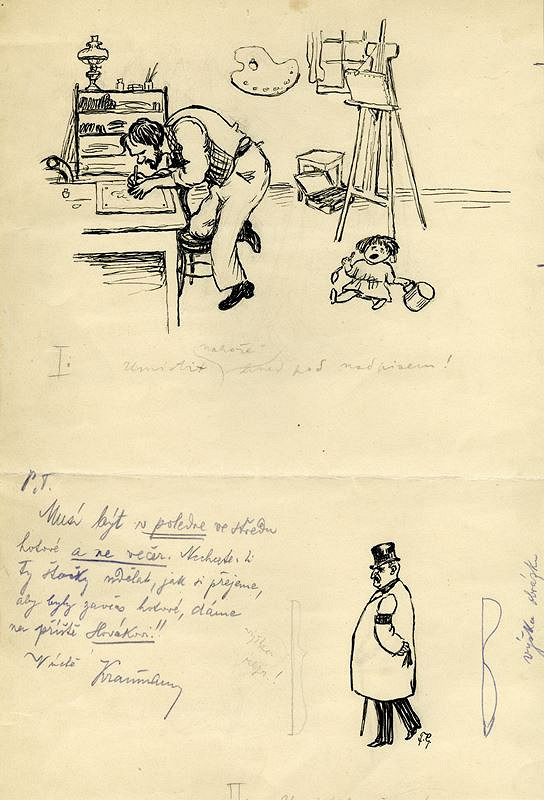 I.
Umístit nahoře hned pod nadpisem!
P.T.
Musí být v poledne ve středu
hotové a ne večer. Nechcete-li
ty štočky udělat, jak si přejeme,
aby byly zavčas hotové, dáme
na příště Novákovi!!
V úctě
výška
výška obrázku
II.